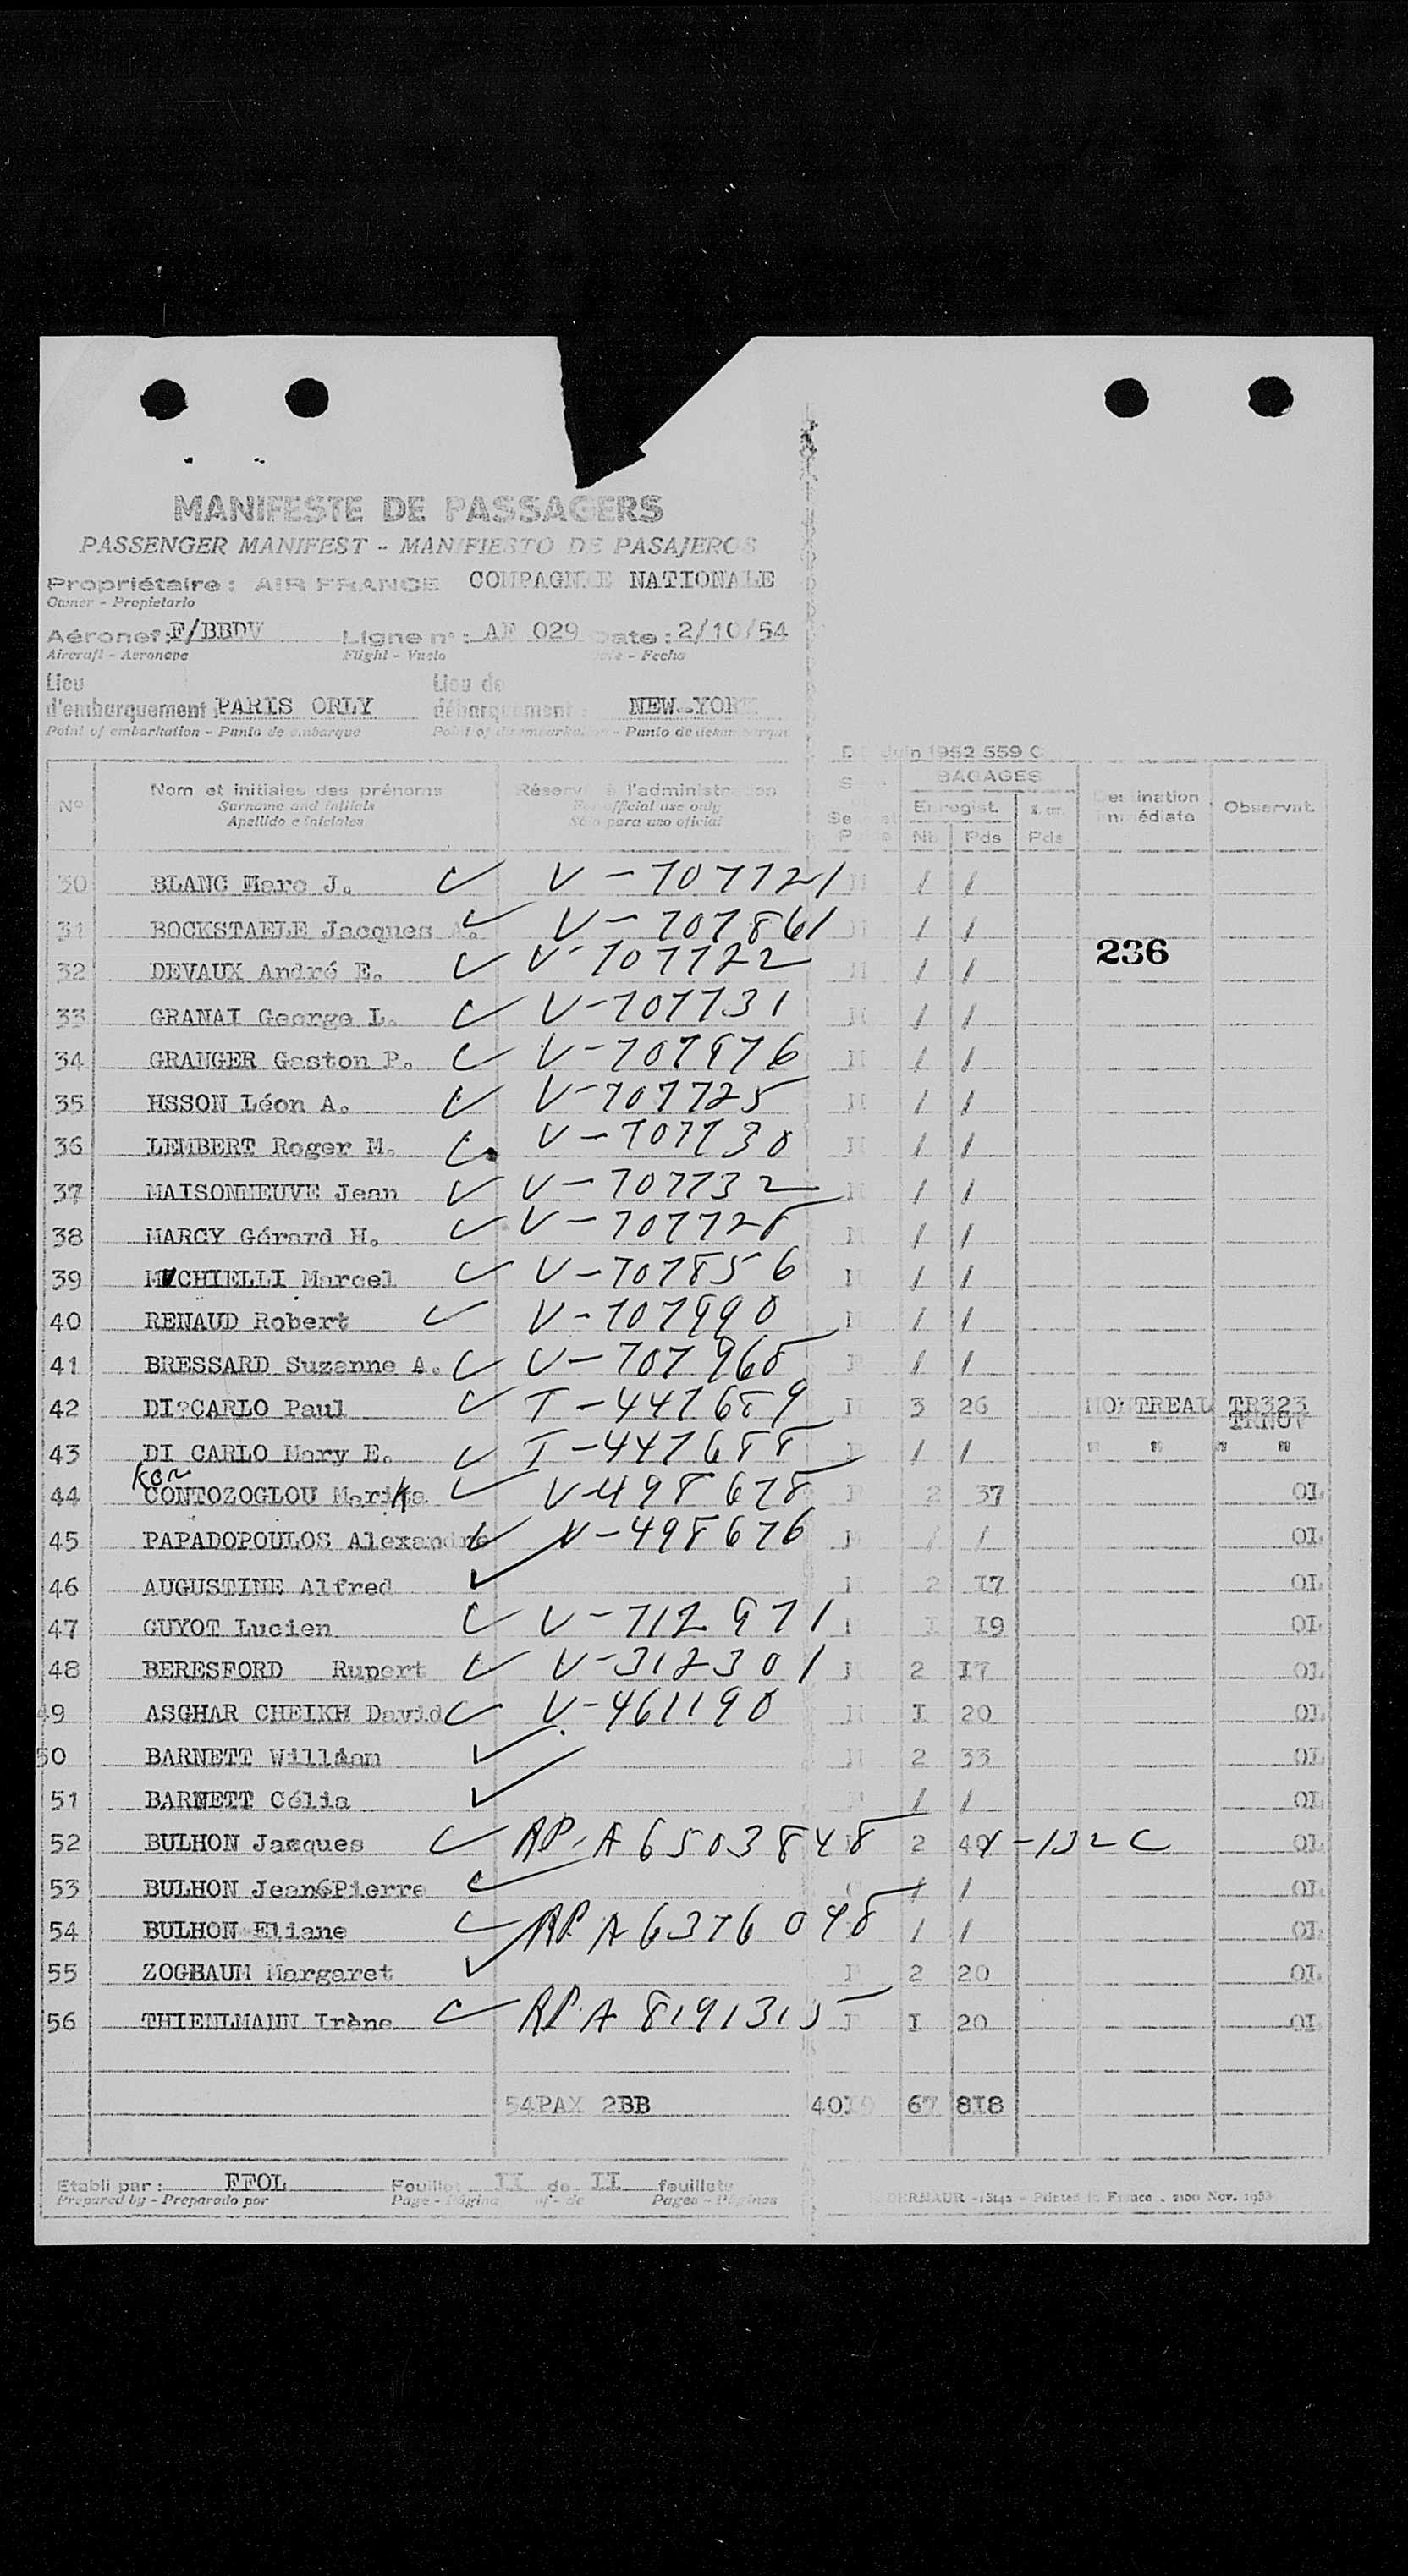 MANIFESTE DE PASSAGERS
PASSENGER MANIFEST - MANIFIESTO DE PASAJEROS
Propriétaire : AIR FRANCE COMPAGNIE NATIONALE
Owner - Propietario
Aéronef : F/BBDV Ligne n° : AF 029 Date : 2/10/54
Aircraft - Aeronave Flight - Vuelo Date - Fecha
Lieu d'embarquement : PARIS ORLY Lieu de débarquement : NEW-YORK
Point of embarkation - Punto de embarque Point of disembarkation - Punto de desembarque
Juin 1952 559 C
N° Nom et initiales des prénoms Réservé à l'administration BAGAGES Destination immédiate Observat.
Surname and initials For official use only Enregist.
Apellido e iniciales Sólo para uso oficial Nb Pds Pds
30 BLANC Marc J. V-707721 M / /
31 BOCKSTAELE Jacques A. V-707861 M / /
236
32 DEVAUX André E. V-707722 M / /
33 GRANAI George L. V-707731 M / /
34 GRANGER Gaston P. V-707976 M / /
35 HSSON Léon A. V-707725 M / /
36 LEMBERT Roger M. V-707730 M / /
37 MAISONNEUVE Jean V-707732 M / /
38 MARCY Gérard H. V-707728 M / /
39 MICHIELLI Marcel V-707856 M / /
40 RENAUD Robert V-707990 M / /
41 BRESSARD Suzanne A. V-707968 F / /
42 DI?CARLO Paul T-447689 M 3 26 MONTREAL TR323
TRNOV
43 DI CARLO Mary E. T-447688 F / / " " " "
Kon
44 CONTOZOGLOU Marika V-498678 F 2 37 OL
45 PAPADOPOULOS Alexandre V-498676 M / / OL
46 AUGUSTINE Alfred 2 I7 OL
47 GUYOT Lucien V-712971 I I9 OL
48 BERESFORD Rupert V-312301 2 I7 OL
49 ASGHAR CHEIKH David V-461190 M I 20 OL
50 BARNETT William M 2 33 OL
51 BARNETT Célia F / / OL
52 BULHON Jacques RP. A6503848 2 OL
53 BULHON Jean Pierre / / OL
54 BULHON Eliane RP. A6376048 / / OL
55 ZOGBAUM Margaret F 2 20 OL
56 THIENLMANN Irène RP. A 8191315 F I 20 OL
54PAX 2BB 40I9 67 8I8
Etabli par : FFOL Feuillet II de II feuillets
Prepared by - Preparado por Page - Página of - de Pages - Páginas
Printed in France . 2100 Nov. 1953